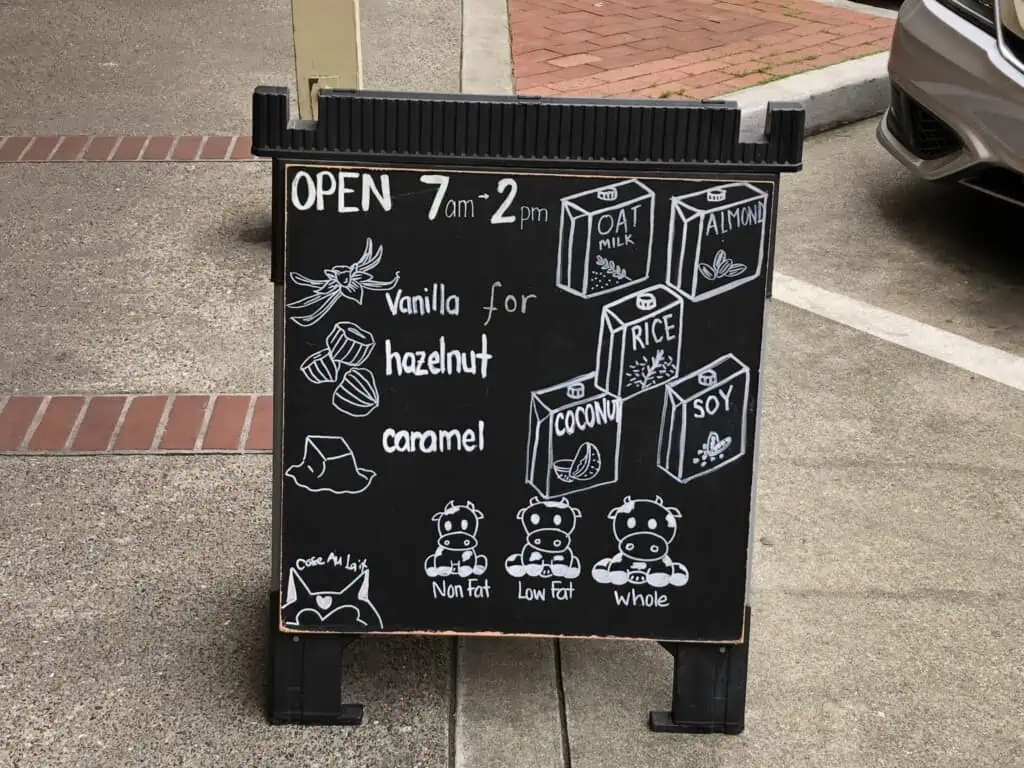 OPEN 7am→2pm
OAT
MILK
ALMOND
Vanilla for
RICE
hazelnut
COCONU
SOY
caramel
Non Fat
Low Fat
Whole
Cafe Au Lait